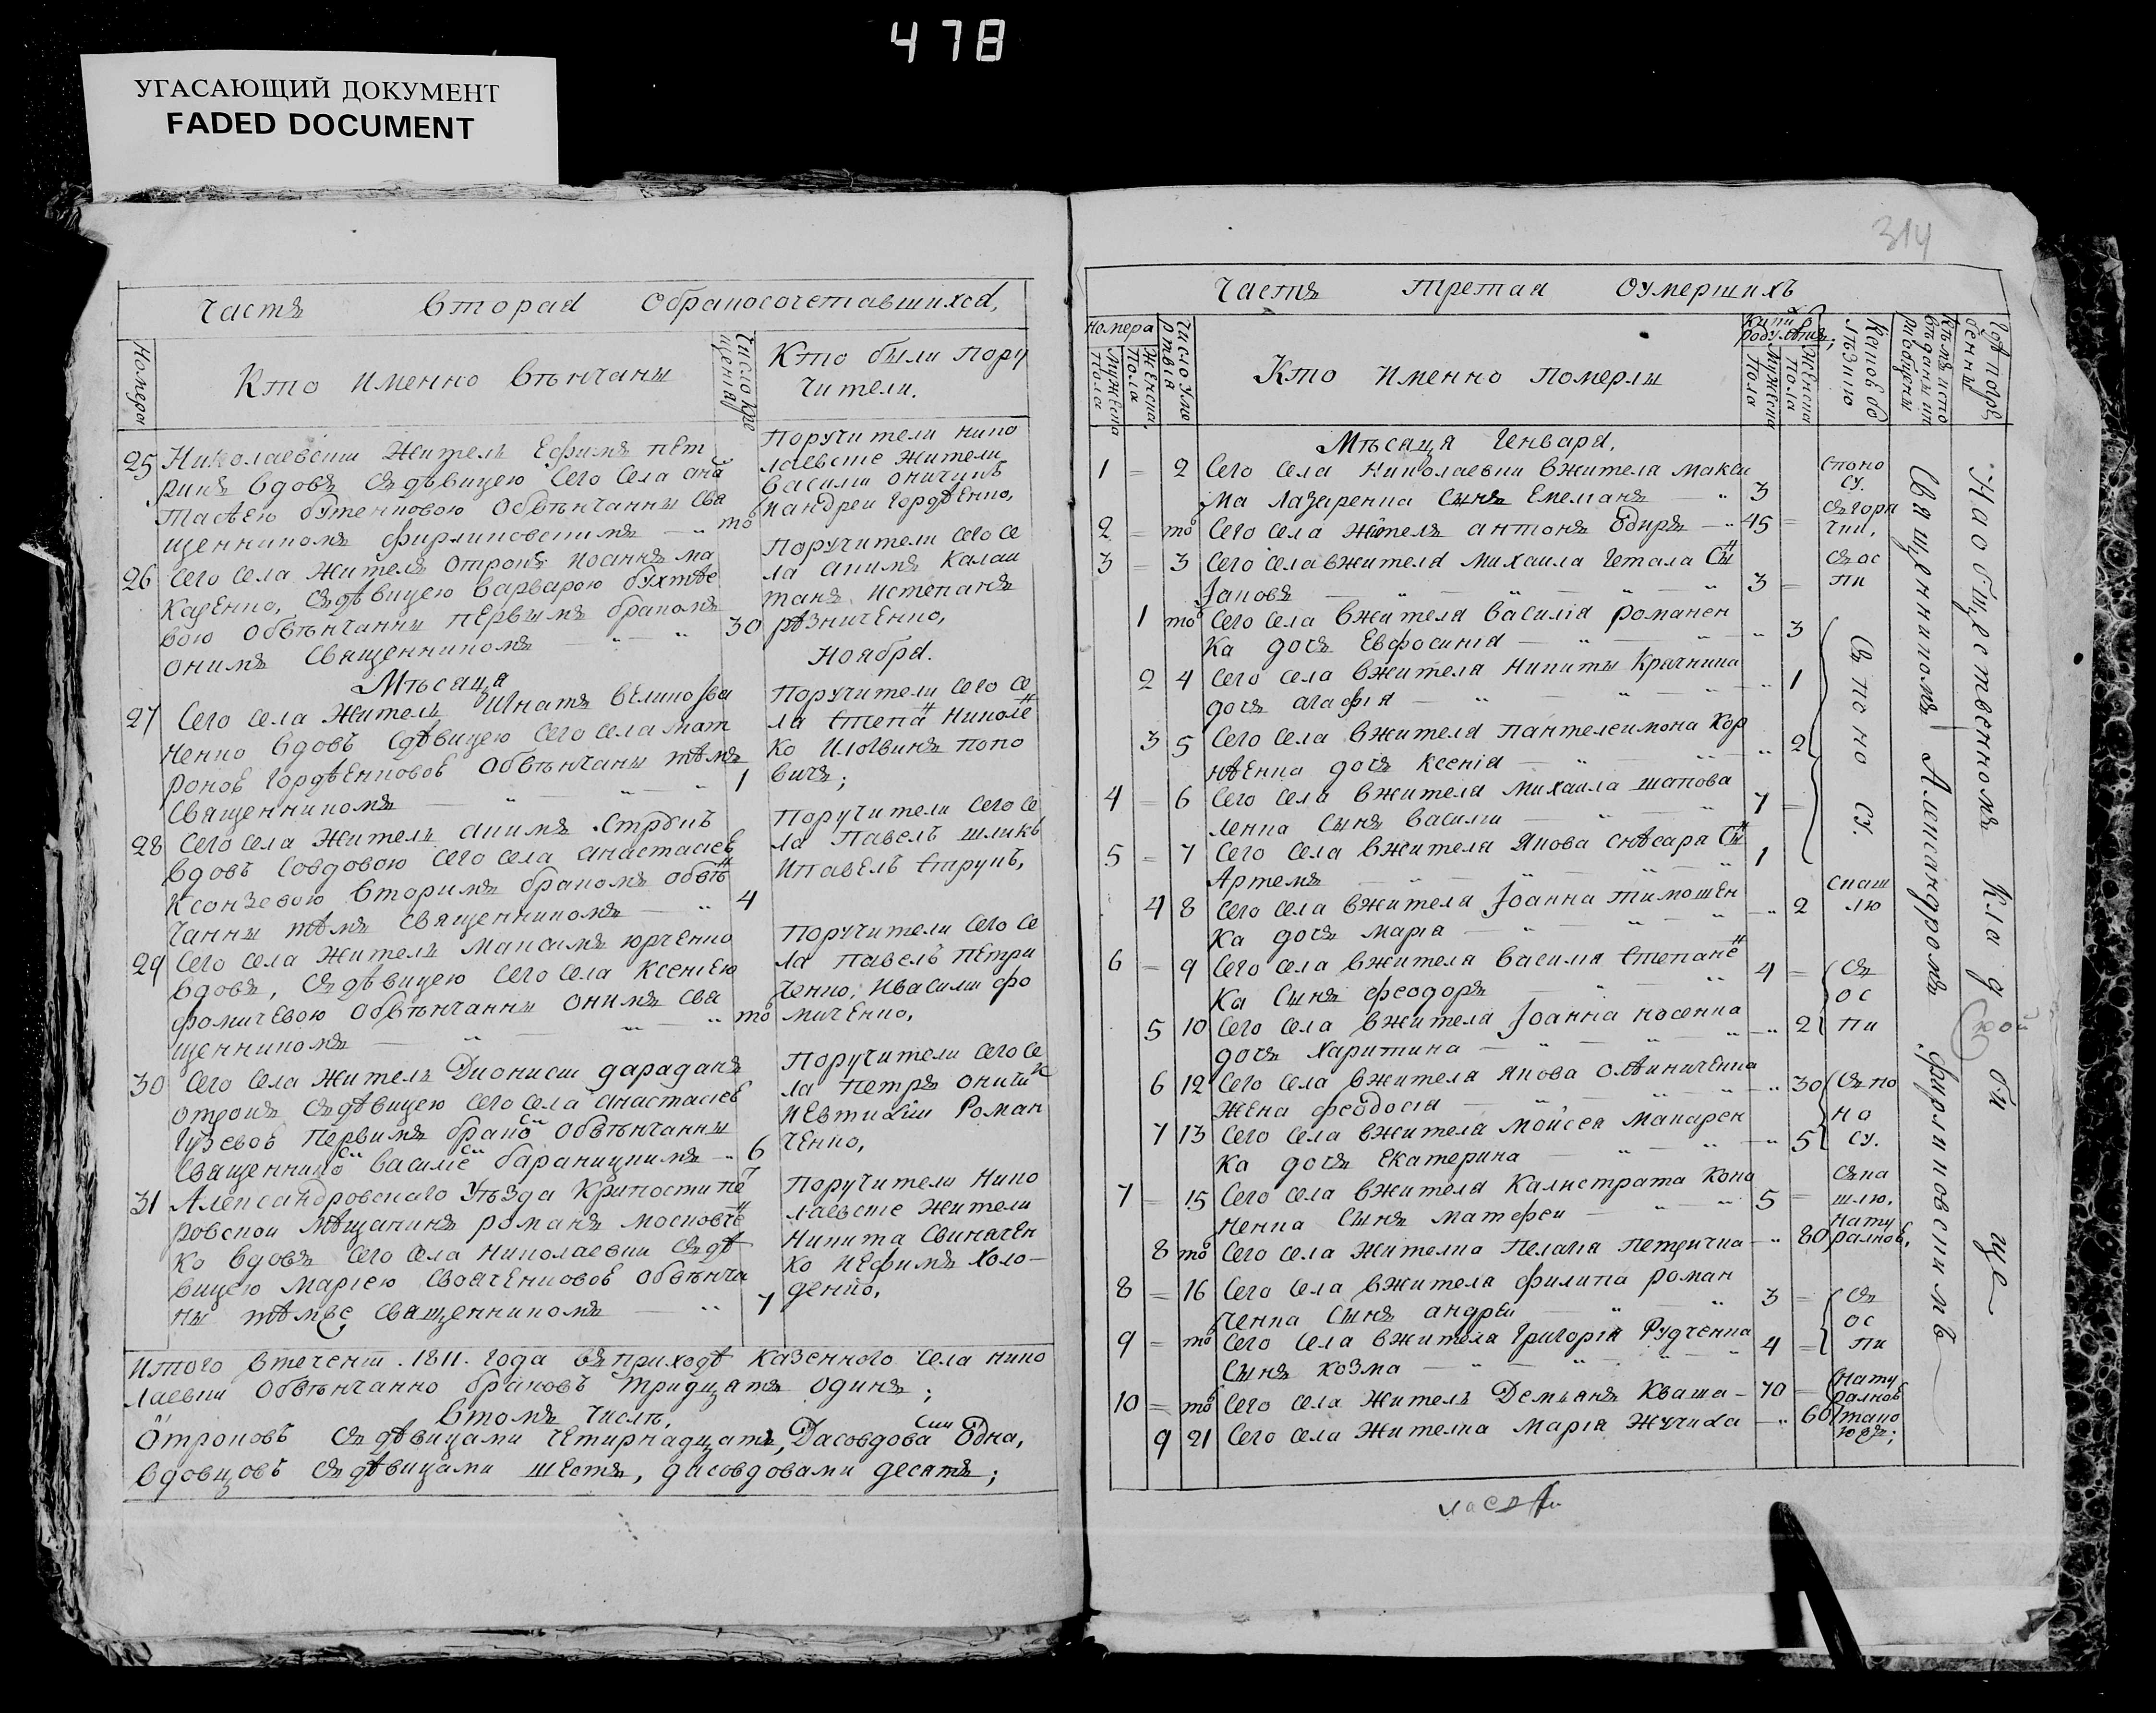 478
УГАСАЮЩИЙ ДОКУМЕНТ
FADED DOCUMENT
Часть вторая обракосочетавшихся,
Номера
Кто именно вѣнчаны
Кто были пору
чители.
25 Николаевский житель Ефимъ пет
ринъ вдовъ съ дѣвицею сего села ана
тасѣею бутенковою обвѣнчанны свя
щенникомъ фирликовскимъ — то
Поручители нико
лаевские жители
василий оничикъ
иандрей гордѣенко,
26 сего села жителя отрокъ иоаннъ ма
каренко, съ дѣвицею варварою бухтѣе
вою обвѣнчанны первымъ бракомъ
онимъ священникомъ — 30
Поручители сего се
ла акимъ калаш
танъ истепанъ
рѣзниченко,
Мѣсяца Ноября.
27 Сего села житель Игнатъ великоїва
ненко вдовъ сдѣвицею сего села мат
роноѣ гордѣенковоѣ обвѣнчаны тѣмъ
священникомъ — 1
Поручители сего се
ла степан николен
ко илогвинъ попо
вичъ;
28 Сего села житель акимъ струкъ
вдовъ совдовою сего села анастасіеѣ
ксонзевою вторимъ бракомъ обвѣн
чанны тѣмъ священникомъ — 4
Поручители сего се
ла павелъ шликъ
ипавелъ струкъ,
29 Сего села житель максимъ юрченко
вдовъ, съ дѣвицею сего села ксеніею
фомичевою обвѣнчанны онимъ свя
щенникомъ — то
Поручители сего се
ла павелъ петри
ченко, ивасилий фо
миченко,
30 сего села житель Дионисий дараданъ
отрокъ съ дѣвицею сего села анастасіеѣ
гузевоѣ первимъ брако обвѣнчанны
священнико василіе бараницкимъ — 6
Поручители сего се
ла петръ оничик
иевтихій роман
ченко,
31 Александровскаго уѣзда крипости пет
ровской мѣщанинъ романъ московчен
ко вдовъ сего села николаевки съ дѣ
вицею маріею своеченковоѣ обвѣнча
ны тѣмже священникомъ — 7
Поручители нико
лаевские жители
никита свиначен
ко иефимъ холо-
денко,
Итого втечении .1811. года въ приходѣ казенного села нико
лаевки обвѣнчанно браковъ тридцать одинъ;
втомъ числѣ,
отроковъ съ дѣвицами четирнадцать, Дасовдова одна,
вдовцовъ съ дѣвицами шесть, дасовдовами десять;
314
Часть третая оумершихъ
Номера
Мужеска пола
Женска пола
Число умертвія
Кто именно померлы
Мужеска пола
Женска пола
Мѣсяця Генваря.
1 = 2 Сего села николаевки вжителя макси
ма лазаренка сынъ емелианъ — 3
споко
су.
2 = то Сего села жителъ антонъ бдиръ — 45 =
съгоря
чки,
3 = 3 Сего села вжителя михаила чепала сын
іаковъ — 3 =
съ ос
пи
1 то Сего села вжителя василія романен
ка дочъ евфосинія — 3
2 4 Сего села вжителя никиты крачника
дочъ агафія — 1
3 5 Сего села вжителя пантелеимона кор
нѣенка дочъ ксенія — 2
съ по ко су.
4 = 6 Сего села вжителя михаила шапова
ленка сынъ василий — 7 =
5 = 7 Сего села вжителя якова слѣсаря сын
Артемъ — 1
4 8 Сего села вжителя іоанна тимошен
ка дочъ марія — 2
скаш
лю
6 = 9 Сего села вжителя василія степанен
ка сынъ феодоръ — 4 =
съ
ос
пи
5 10 Сего села вжителя іоанна носенка
дочъ харитина — 2
6 12 Сего села вжителя якова олѣиниченка
жена феодосія — 30
съ по
ко
су.
7 13 Сего села вжителя мойсея макарен
ка дочъ екатерина — 5
7 = 15 Сего села вжителя калистрата коно
ненка сынъ матефей — 5 =
съка
шлю,
8 то Сего села жителка пелагія петричка — 80
нату
ралноѣ,
8 = 16 Сего села вжителя филипа роман
ченка сынъ андрей — 3 =
съ
ос
пи
9 = то Сего села вжителя григорія рудченка
сынъ козма — 4 =
10 = то Сего села житель Демъянъ кваша — 70 =
нату
ралноѣ
тако
юже;
9 21 Сего села жителка марія жучиха — 60
Священникомъ Александромъ фирликовскимъ
На общественномъ кладби ще